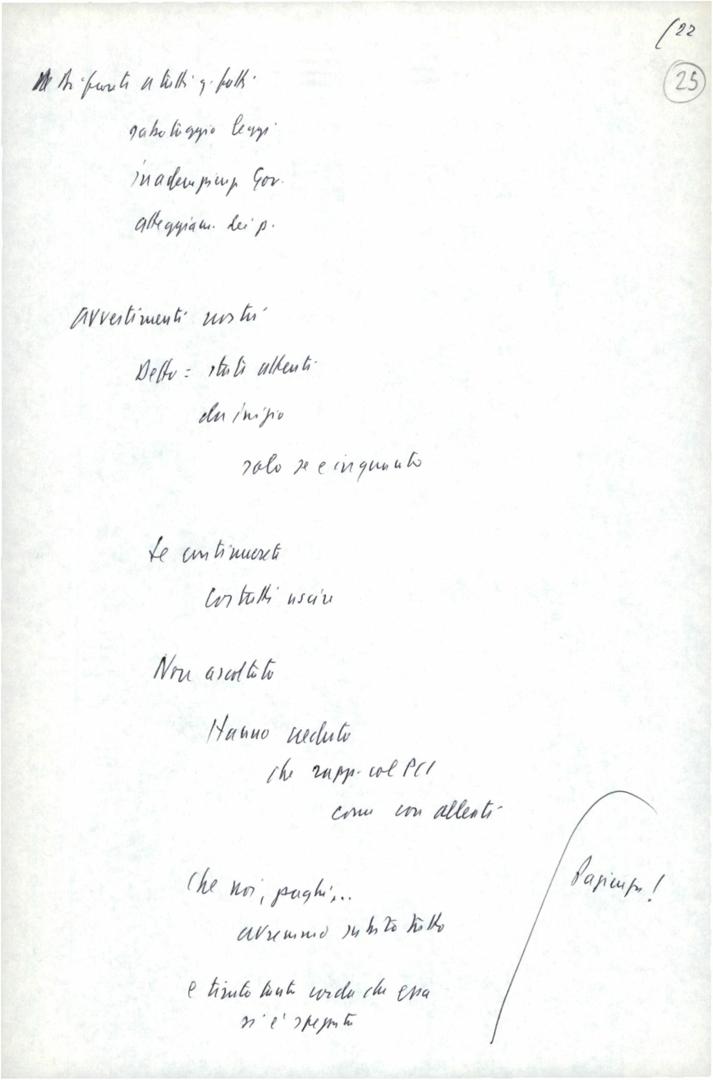 22
25
Di fronte a tutti q. fatti
sabotaggio leggi
inadempienz. Gov.
atteggiam. dei p.
avvertimenti nostri
Detto = stati attenti
da inizio
solo se e in quanto
Se continuerete
costretti uscire
Non ascoltato
Hanno creduto
che rapp. col PCI
come con alleati
Che noi, paghi,..
avremmo subito tutto
Pazienza!
e tirato tanto corda che essa
si è spezzata